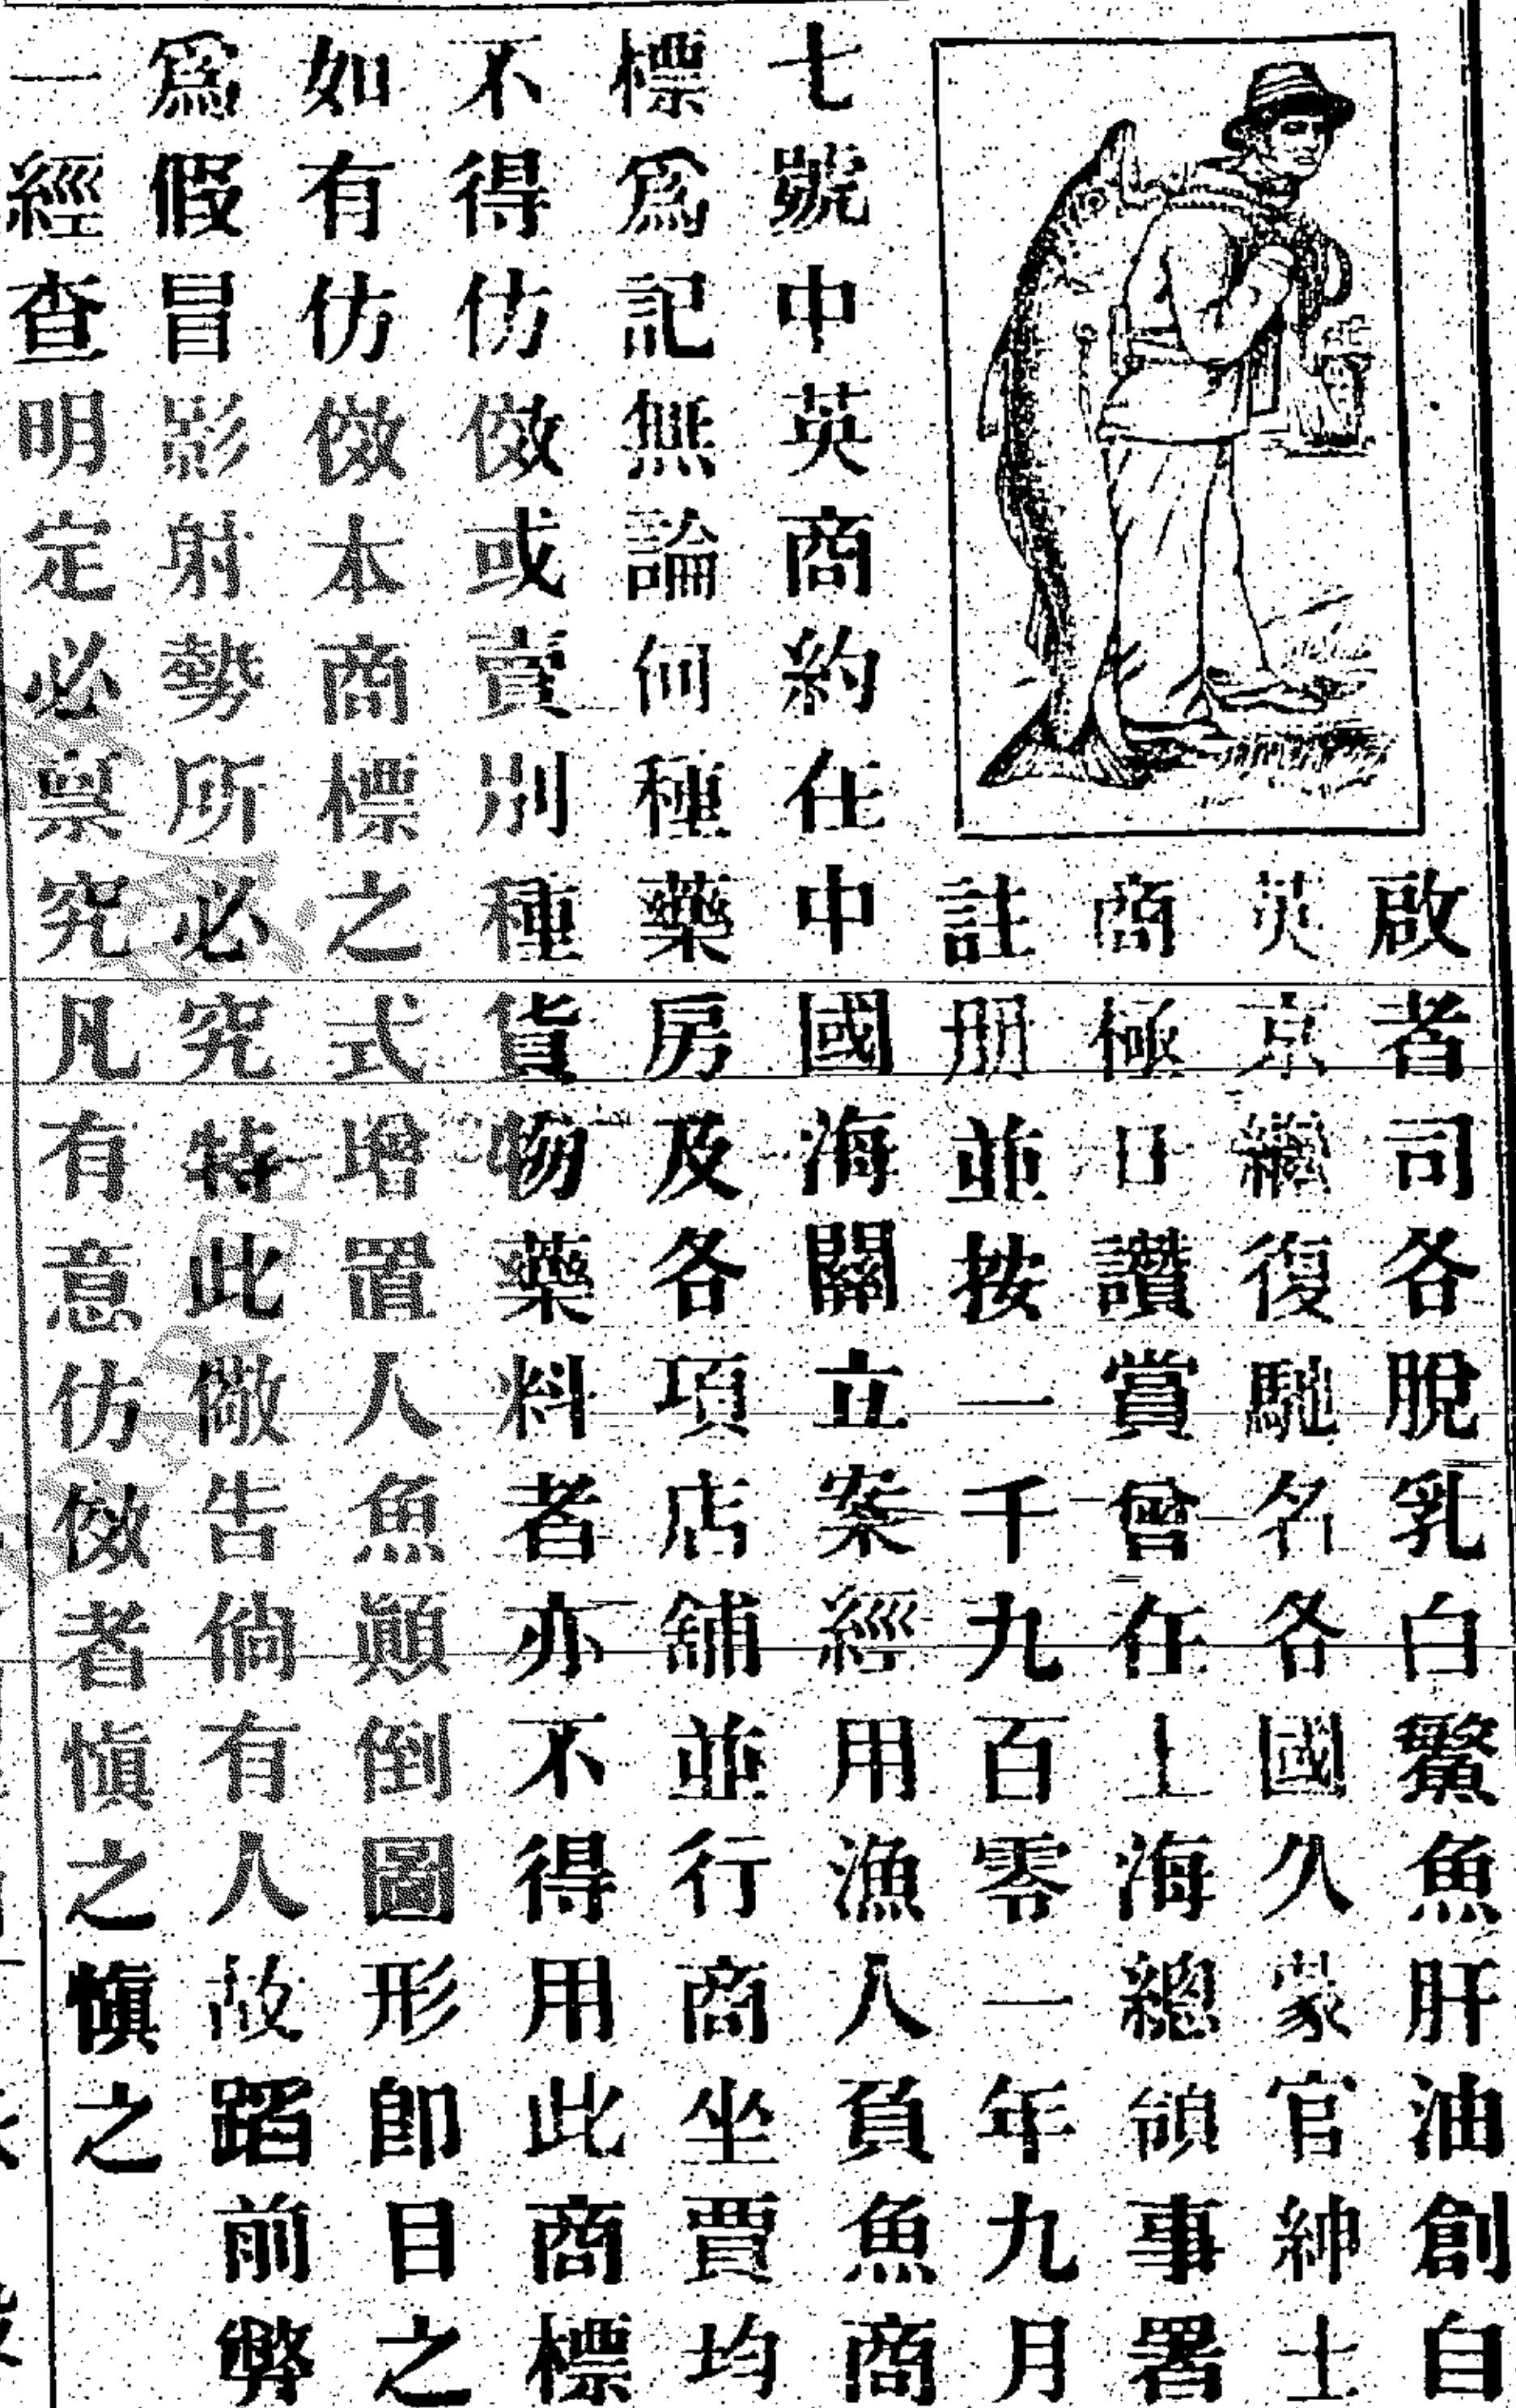 啟者司各脫乳白鰵魚肝油創自
英京繼復馳名各國久蒙官紳士
商極口讚賞曾在上海總領事署
註册並按一千九百零一年九月
七號中英商約在中國海關立案經用漁人負魚商
標爲記無論何種藥房及各項店舖並行商坐賈均
不得仿傚或賣別種貨物藥料者亦不得用此商標
如有仿傚本商標之式增置人魚顛倒圖形卽目之
爲假冒影射勢所必究特此儆告倘有人故蹈前弊
一經查明定必禀究凡有意仿傚者愼之愼之